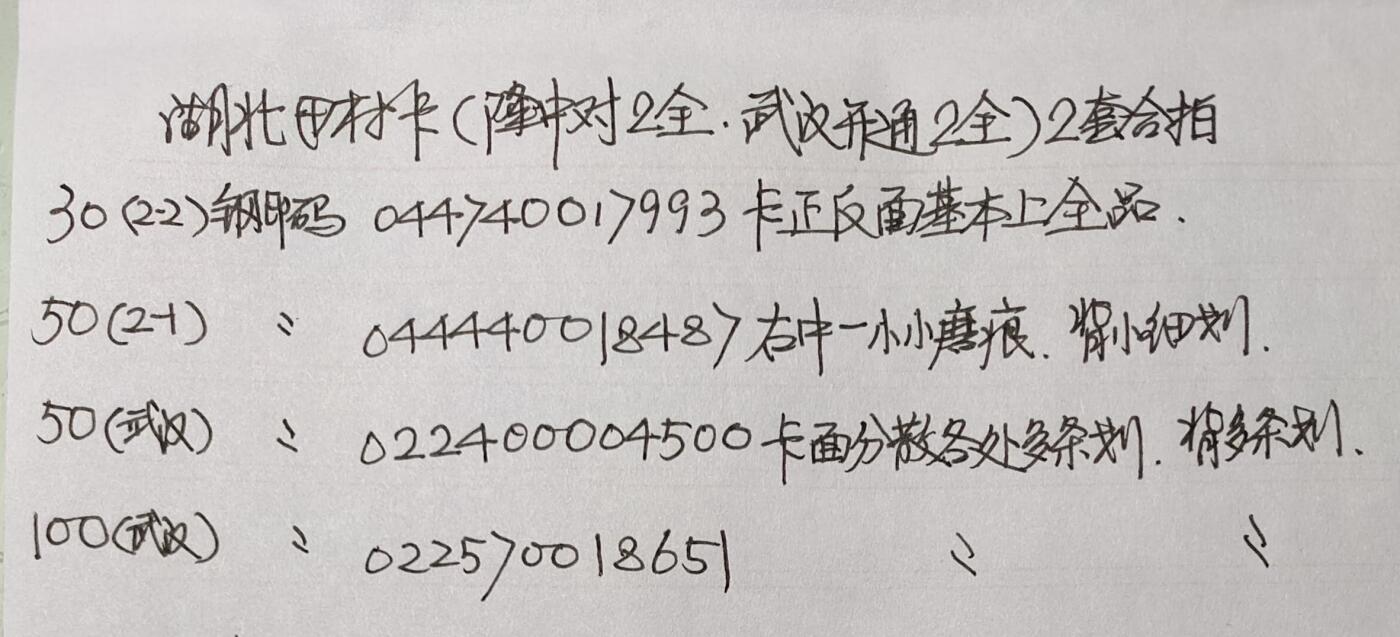 湖北田村卡(隆中对2全.武汉开通2全)2套合拍
30(2-2)钢印码 044740017993 卡正反面基本上全品.
50(2-1) 〃 044440018487 右中一小小磨痕. 背小细划.
50(武汉) 〃 022400004500 卡面分散各处多条划. 背多条划.
100(武汉) 〃 022570018651 〃 〃